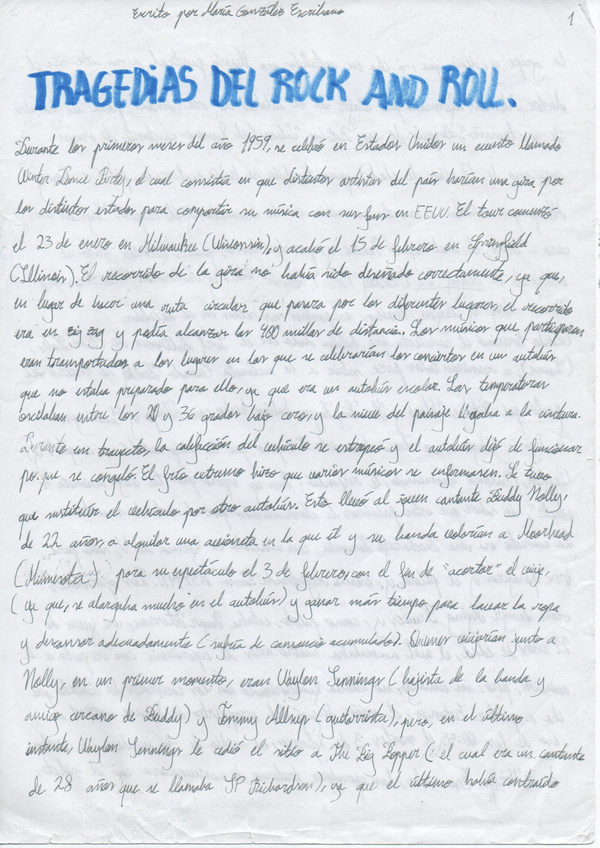 Escrito por María González Escribano
1
TRAGEDIAS DEL ROCK AND ROLL.
Durante los primeros meses del año 1959, se celebró en Estados Unidos un evento llamado
Winter Dance Party, el cual consistía en que distintos artistas del país harían una gira por
los distintos estados para compartir su música con sus fans en EEUU. El tour comenzó
el 23 de enero en Milwaukee (Wisconsin), y acabó el 15 de febrero en Springfield
(Illinois). El recorrido de la gira no había sido diseñado correctamente, ya que,
en lugar de hacer una ruta circular que pasara por los diferentes lugares, el recorrido
era en zig zag y podía alcanzar las 400 millas de distancia. Los músicos que participaron
eran transportados a los lugares en los que se celebrarían los conciertos en un autobús
que no estaba preparado para ello, ya que era un autobús escolar. Las temperaturas
oscilaban entre los 20 y 36 grados bajo cero, y la nieve del paisaje llegaba a la cintura.
Durante un trayecto, la calefacción del vehículo se estropeó y el autobús dejó de funcionar
porque se congeló. El frío extremo hizo que varios músicos se enfermasen. Se tuvo
que sustituir el vehículo por otro autobús. Esto llevó al joven cantante Buddy Holly,
de 22 años, a alquilar una avioneta en la que él y su banda volarían a Moorhead
(Minnesota) para su espectáculo el 3 de febrero, con el fin de "acortar" el viaje,
(ya que, se alargaba mucho en el autobús) y ganar más tiempo para lavar la ropa
y descansar adecuadamente (sufría de cansancio acumulado). Quienes viajarían junto a
Holly, en un primer momento, eran Waylon Jennings (bajista de la banda y
amigo cercano de Buddy) y Tommy Allsup (guitarrista), pero, en el último
instante, Waylon Jennings le cedió el sitio a The Big Bopper (el cual era un cantante
de 28 años que se llamaba JP Richardson), ya que el último había contraído